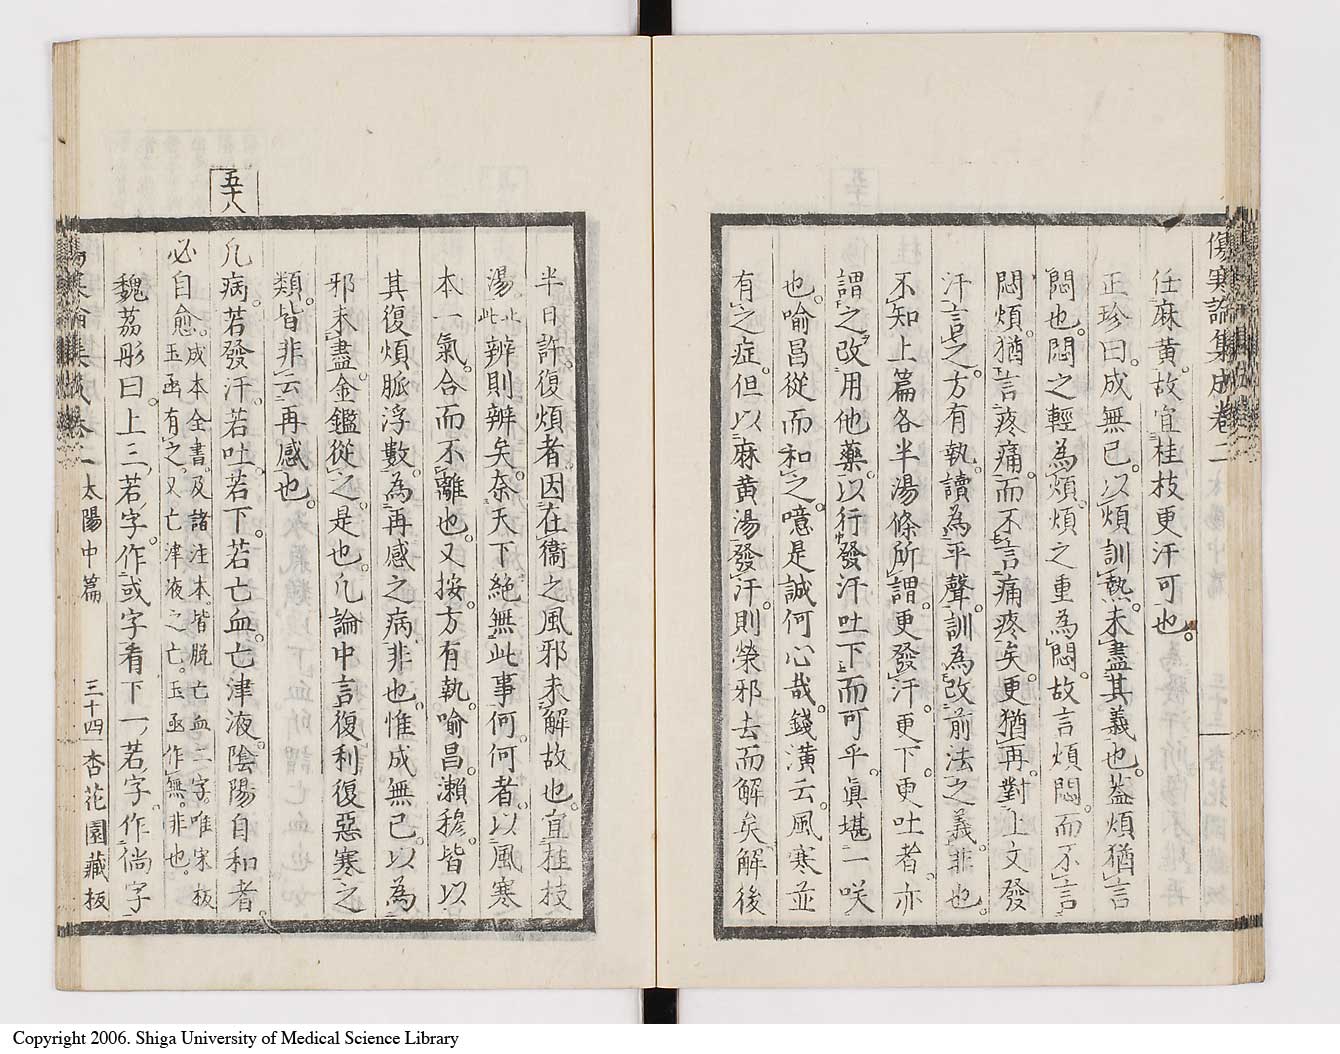 傷寒論集成卷二
任麻黃。故宜桂枝更汗可也。
正珍曰。成無已。以煩訓熱。未盡其義也。蓋煩猶言
悶也。悶之輕為煩。煩之重為悶。故言煩悶。而不言
悶煩。猶言疼痛。而不言痛疼矣。更猶再。對上文發
汗言之。方有執。讀為平聲。訓為改前法之義。非也。
不知上篇各半湯條所謂。更發汗。更下。更吐者。亦
謂之改用他藥。以行發汗吐下而可乎。眞堪一咲
也。喻昌從而和之。噫是誠何心哉。錢潢云。風寒並
有之症。但以麻黃湯發汗。則榮邪去而解矣。解後
半日許。復煩者。因在衞之風邪未解故也。宜桂枝
湯。此辨則辨矣。奈天下絕無此事何。何者。以風寒
本一氣。合而不離也。又按。方有執。喻昌。瀨穆。皆以
其復煩脈浮數。為再感之病。非也。惟成無已。以為
邪未盡。金鑑從之。是也。凡論中言復利復惡寒之
類。皆非云再感也。
五十八
凡病。若發汗。若吐。若下。若亡血。亡津液。陰陽自和者
必自愈。成本全書。及諸注本。皆脱亡血二字。唯宋板
玉函有之。又亡津液之亡。玉函作無。非也。
魏荔彤曰。上三若字。作或字看。下一若字。作倘字
太陽中篇
三十四
杏花園藏板
Copyright 2006. Shiga University of Medical Science Library